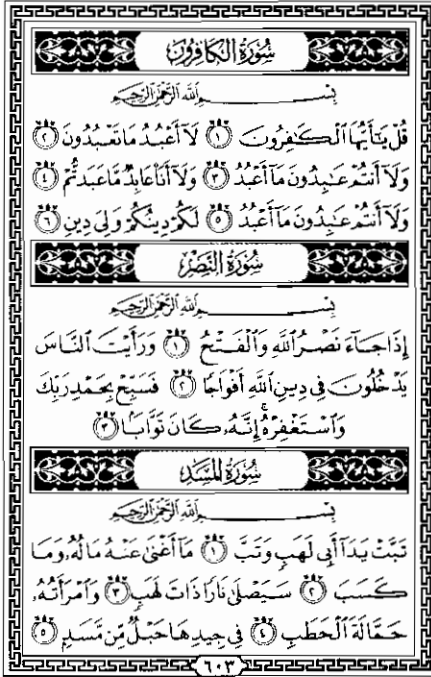 سُورَةُ الْكَافِرُونَ
بِسْمِ اللَّهِ الرَّحْمَٰنِ الرَّحِيمِ
قُلْ يَٰٓأَيُّهَا ٱلْكَٰفِرُونَ ١ لَآ أَعْبُدُ مَا تَعْبُدُونَ ٢
وَلَآ أَنتُمْ عَٰبِدُونَ مَآ أَعْبُدُ ٣ وَلَآ أَنَا۠ عَابِدٌ مَّا عَبَدتُّمْ ٤
وَلَآ أَنتُمْ عَٰبِدُونَ مَآ أَعْبُدُ ٥ لَكُمْ دِينُكُمْ وَلِىَ دِينِ ٦
سُورَةُ النَّصْرِ
بِسْمِ اللَّهِ الرَّحْمَٰنِ الرَّحِيمِ
إِذَا جَآءَ نَصْرُ ٱللَّهِ وَٱلْفَتْحُ ١ وَرَأَيْتَ ٱلنَّاسَ
يَدْخُلُونَ فِى دِينِ ٱللَّهِ أَفْوَاجًا ٢ فَسَبِّحْ بِحَمْدِ رَبِّكَ
وَٱسْتَغْفِرْهُ ۚ إِنَّهُۥ كَانَ تَوَّابًۢا ٣
سُورَةُ الْمَسَدِ
بِسْمِ اللَّهِ الرَّحْمَٰنِ الرَّحِيمِ
تَبَّتْ يَدَآ أَبِى لَهَبٍ وَتَبَّ ١ مَآ أَغْنَىٰ عَنْهُ مَالُهُۥ وَمَا
كَسَبَ ٢ سَيَصْلَىٰ نَارًا ذَاتَ لَهَبٍ ٣ وَٱمْرَأَتُهُۥ
حَمَّالَةَ ٱلْحَطَبِ ٤ فِى جِيدِهَا حَبْلٌ مِّن مَّسَدٍۭ ٥
٦٠٣